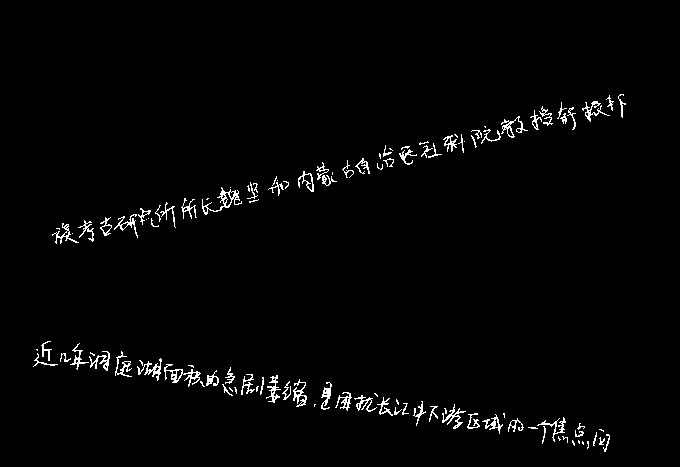 族考古研究所所长魏坚和内蒙古自治区社科院教授舒振邦
近几年洞庭湖面积的急剧萎缩,是困扰长江中下游区域的一个焦点问